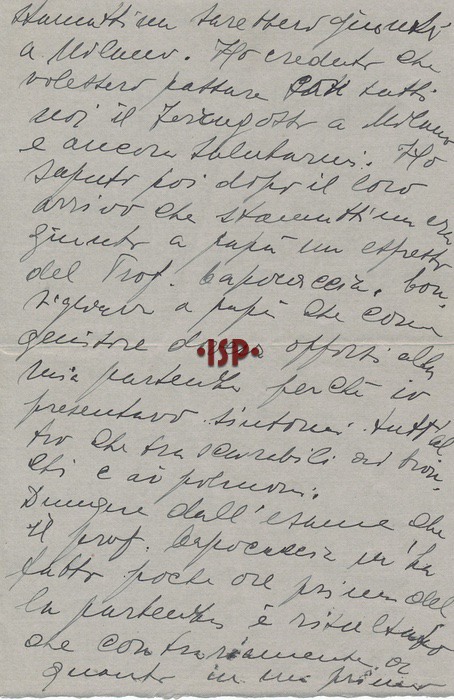 stamattina sarebbero giunti
a Milano. Ho creduto che
volessero passare con tutti
noi il Ferragosto a Milano
e ancora salutarmi. Ho
saputo poi dopo il loro
arrivo che stamattina era
giunto a papà un espresso
del Prof. Capocaccia, con-
sigliava a papà che come
genitore opporsi alla
mia partenza perché io
presentavo sintomi tutt'al
tro che trascurabili ai bron-
chi e ai polmoni.
Dunque dall'esame che
il prof. Capocaccia m'ha
fatto poche ore prima del
la partenza è risultato
che contrariamente a
quanto in un primo
•ISP•